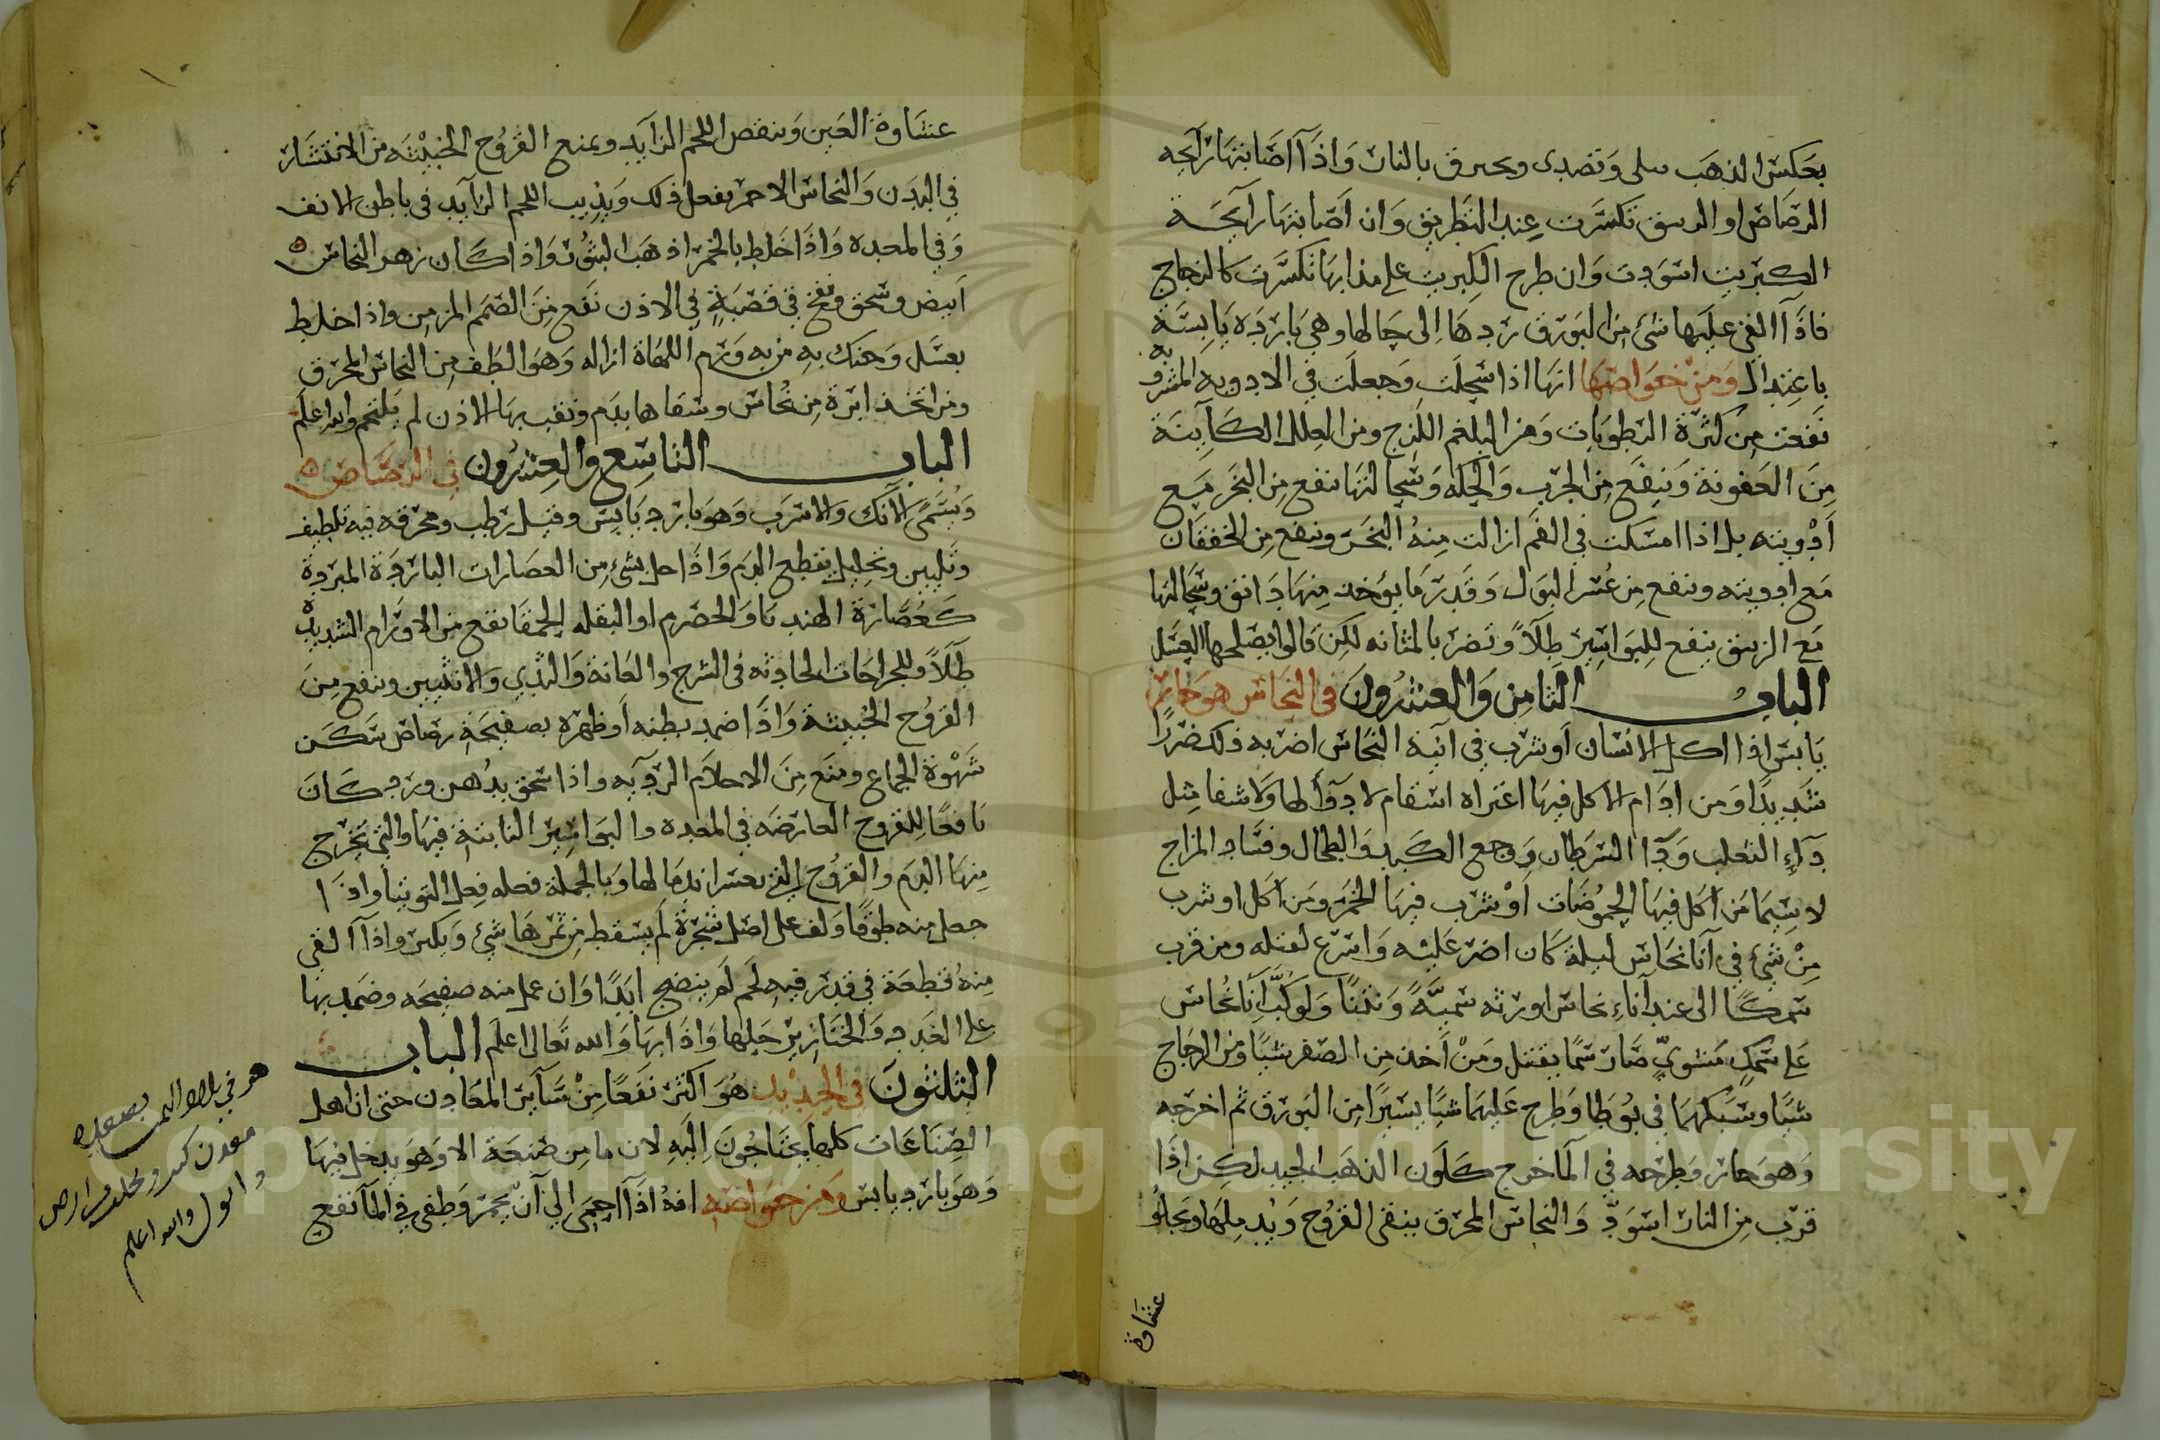 بعكس الذهب تبلى وتصدى وتحترق بالنار واذا اصابتها رآيحه
الرصاص او الزيبق تكسرت عند التطريق وان اصابتها رآيحة
الكبريت اسودت وان طرح الكبريت على مذابها تكسرت كالزجاج
فاذا القى عليها شئ من البورق ردها الى حالها وهي باردة يابسة
باعتدال ومن خواصها انها اذا سحلت وجعلت في الادويه المشروبه
نفعت من كثرة الرطوبات ومن البلغم اللزج ومن العلل الكآينة
من العفونة وينفع من الجرب والحكه وسحالتها تنفع من البخر مع
أدويته بل اذا امسكت في الفم ازالت منه البخر وينفع من الخفقان
مع ادويته وينفع من عسر البول وقدر ما يؤخذ منها دانق وسحالتها
مع الزيبق ينفع للبواسير طلآ وتضر بالمثانه لكن قالوا يصلحها العسل
الباب الثامن والعشرون في النحاس هو حار
يابس اذا اكل الانسان أو شرب في آنية النحاس اضر به ذلك ضررا
شديدا ومن ادام الاكل فيها اعتراه اسقام لا دوآ لها ولا شفا مثل
دآء الثعلب ودآ السرطان ووجع الكبد والطحال وفساد المزاج
لا سيما من اكل فيها الحموضات أو شرب فيها الخمر ومن أكل او شرب
من شئ في آنا نحاس ليلة كان اضر عليه واسرع لقتله ومن قرب
سمكا الى عند آناء نحاس اورثه سمية ونتنا ولو كب آنا نحاس
على سمك مشوي صار سما يقتل ومن أخذ من الصفر شيا ومن الزجاج
شيا وسبكهما في بوطا وطرح عليهما شيا يسيرا من البورق ثم اخرجه
وهو حار وطرحه في المآ خرج كلون الذهب الجيد لكن اذا
قرب من النار اسود والنحاس المحرق ينقى القروح ويدملها ويجلو
عشاوة
عشاوة العين وينقص اللحم الزآيد ويمنع القروح الخبيثه من الانتشار
في البدن والنحاس الاحمر يفعل ذلك ويذيب اللحم الزآيد في باطن الانف
وفي المعده واذا خلط بالخمر اذهب البثور واذا كان زهر النحاس
أبيض وسحق ونفخ في قصبة في الاذن نفع من الصمم المزمن واذا خلط
بعسل وحنك به من به ورم اللهاة ازاله وهو الطف من النحاس المحرق
ومن اتخذ ابرة من نحاس وسقاها بدم وثقب بها الاذن لم يلتحم والله اعلم
الباب التاسع والعشرون في الرصاص
ويسمى الآنك والاسرب وهو بارد يابس وقيل رطب ومحرقه فيه تلطيف
وتليين وتحليل يقطع الدم واذا حل بشئ من العصارات الباردة المبردة
كعصارة الهندبا والحصرم او البقله الحمقا نفع من الاورام الشديدة
طلآ وللجراحات الحادثه في الشرج والعانة والثدي والانثيين وينفع من
القروح الخبيثة واذا ضمد بطنه أو ظهره بصفيحة رصاص سكن
شهوة الجماع ومنع من الاحلام الرديه واذا سحق بدهن ورد كان
نافعا للقروح العارضه في المعده والبواسير النابتة فيها والتي يخرج
منها الدم والقروح التي يعسر اندمالها وبالجملة فعله فعل التوتيا واذا
جعل منه طوقا ولف على اصل شجرة لم يسقط من ثمرها شئ ويكبر واذا القى
منه قطعة في قدر فيه لحم لم ينضج ابدا وان عمل منه صفيحه وضمد بها
على الغدد والخنازير حللها واذابها والله تعالى اعلم الباب
الثلثون في الحديد هو اكثر نفعا من سآير المعادن حتى ان اهل
الصناعات كلها يحتاجون اليه لان ما من صنعة الا وهو يدخل فيها
وهو بارد يابس ومن خواصه انه اذا احمى الى آن يحمر وطفى في المآ نفع
هو في بلاد اليمن بصعده
معدن
والله اعلم
Copyright © King Saud University